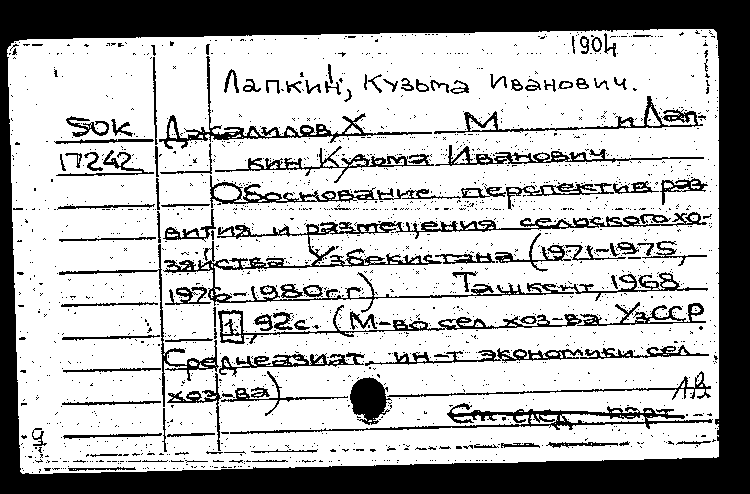 1904
Лапкин, Кузьма Иванович.
50К Джалилов, Х М и Лап-
17242 кин, Кузьма Иванович.
Обоснование перспектив раз-
вития и размещения сельского хо-
зяйства Узбекистана (1971-1975,
1976-1980г.г). Ташкент, 1968.
[1], 92с. (М-во сел. хоз-ва УзССР
Среднеазиат. ин-т экономики сел.
хоз-ва).
См. след. карт